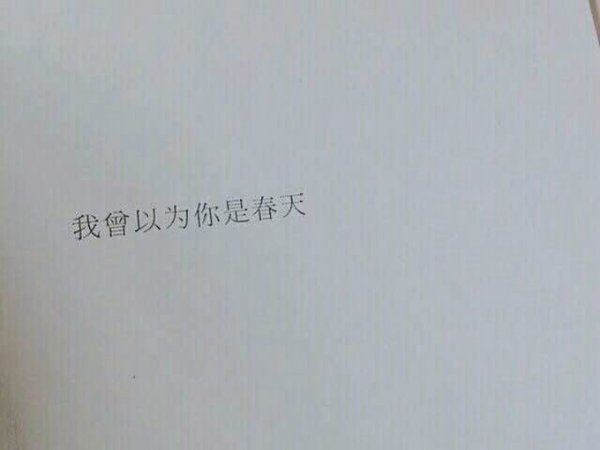 我曾以为你是春天